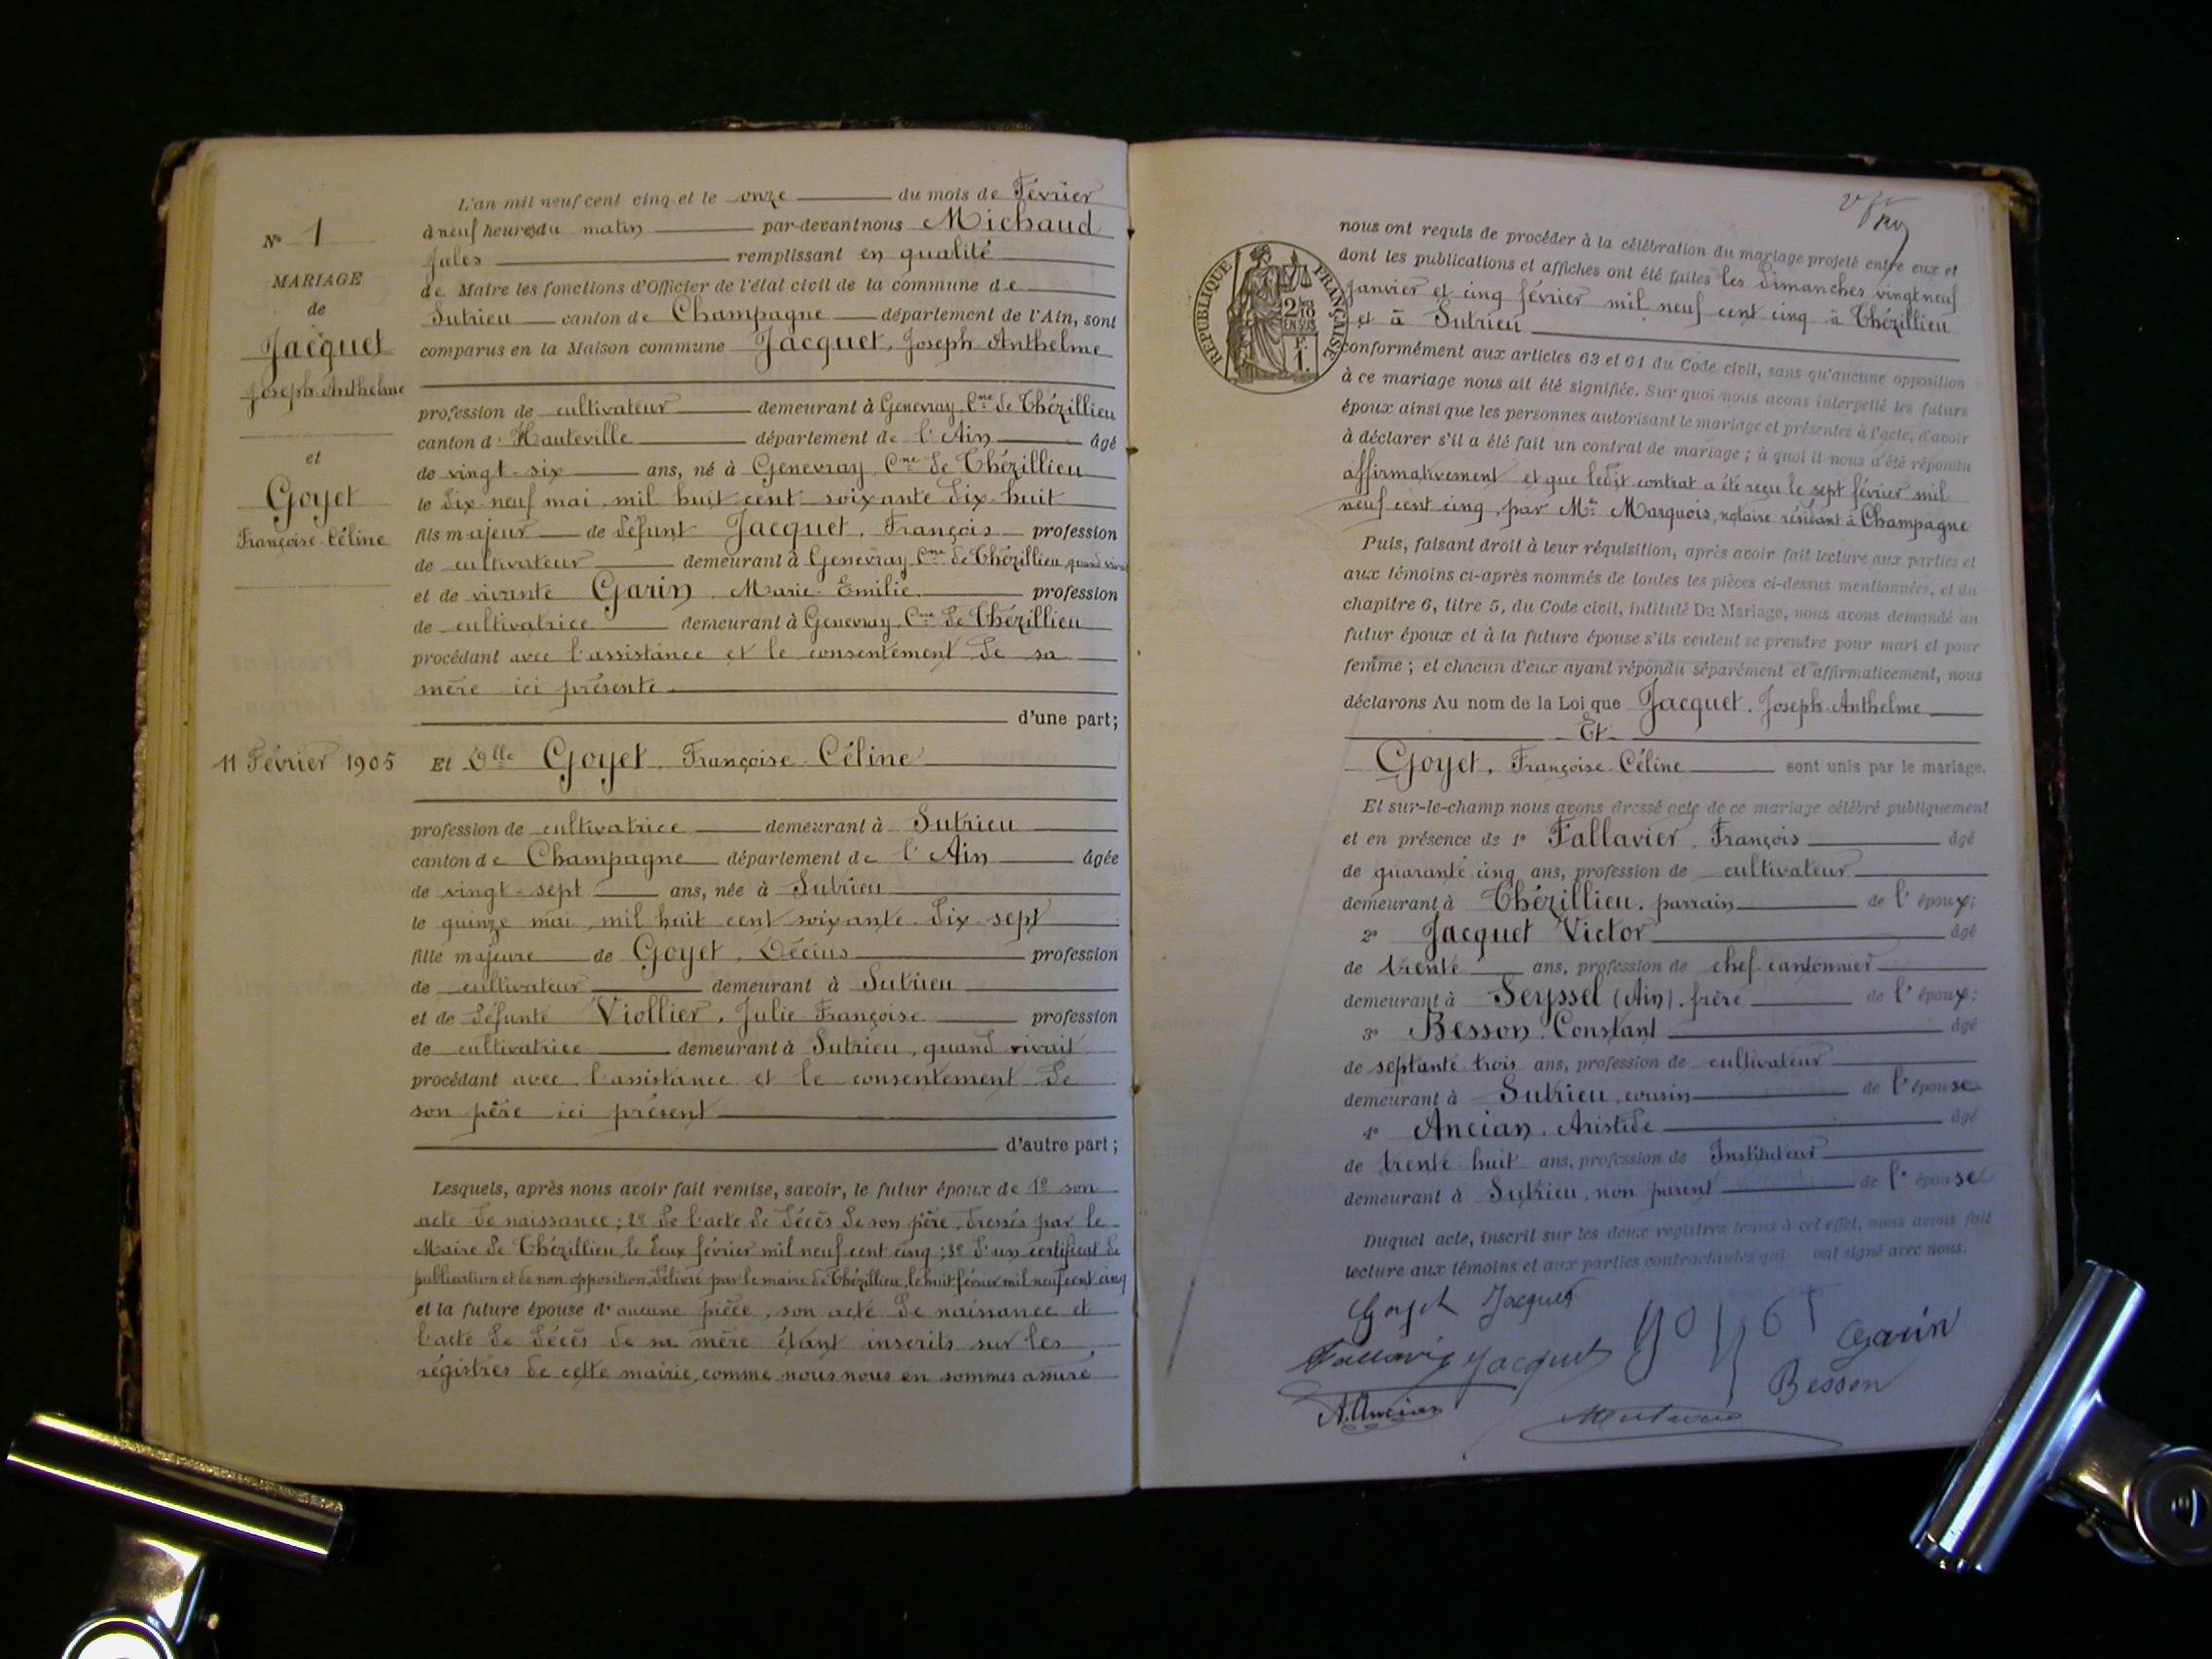 N° 1
MARIAGE
de
Jacquet
Joseph-Anthelme
et
Goyet
Françoise-Céline
11 Février 1905
L'an mil neuf cent cinq et le onze du mois de Février
à neuf heures du matin par-devant nous Michaud
Jules remplissant en qualité
de Maire les fonctions d'Officier de l'état civil de la commune de
Sutrieu canton de Champagne département de l'Ain, sont
comparus en la Maison commune Jacquet, Joseph-Anthelme
profession de cultivateur demeurant à Genevray, Cne de Thézillieu
canton d' Hauteville département de l'Ain âgé
de vingt-six ans, né à Genevray, Cne de Thézillieu
le dix-neuf mai, mil huit cent soixante dix-huit
fils majeur de défunt Jacquet, François profession
de cultivateur demeurant à Genevray Cne de Thézillieu, quand vivait
et de vivante Garin, Marie-Emilie profession
de cultivatrice demeurant à Genevray, Cne de Thézillieu
procédant avec l'assistance et le consentement de sa
mère ici présente
d'une part;
Et Dlle Goyet, Françoise-Céline
profession de cultivatrice demeurant à Sutrieu
canton de Champagne département de l'Ain âgée
de vingt-sept ans, née à Sutrieu
le quinze mai, mil huit cent soixante-dix-sept
fille majeure de Goyet, Décius profession
de cultivateur demeurant à Sutrieu
et de défunte Viollier, Julie-Françoise profession
de cultivatrice demeurant à Sutrieu, quand vivait
procédant avec l'assistance et le consentement de
son père ici présent
d'autre part;
Lesquels, après nous avoir fait remise, savoir, le futur époux de 1° son
acte de naissance; 2° de l'acte de décès de son père, dressés par le
Maire de Thézillieu, le deux février mil neuf cent cinq; 3° d'un certificat de
publication et de non opposition, délivré par le maire de Thézillieu, le huit février mil neuf cent cinq
et la future épouse d'aucune pièce, son acte de naissance et
l'acte de décès de sa mère étant inscrits sur les
régistres de cette mairie, comme nous nous en sommes assuré
RÉPUBLIQUE FRANÇAISE
2/10
EN SUS
F.
1.
nous ont requis de procéder à la célébration du mariage projeté entre eux et
dont les publications et affiches ont été faites les dimanches vingt neuf
janvier et cinq février mil neuf cent cinq à Thézillieu
et à Sutrieu
conformément aux articles 63 et 61 du Code civil, sans qu'aucune opposition
à ce mariage nous ait été signifiée. Sur quoi nous avons interpellé les futurs
époux ainsi que les personnes autorisant le mariage et présentes à l'acte, d'avoir
à déclarer s'il a été fait un contrat de mariage; à quoi il nous a été répondu
affirmativement et que ledit contrat a été reçu le sept février mil
neuf cent cinq, par Me Marquois, notaire résidant à Champagne
Puis, faisant droit à leur réquisition, après avoir fait lecture aux parties et
aux témoins ci-après nommés de toutes les pièces ci-dessus mentionnées, et du
chapitre 6, titre 5, du Code civil, intitulé Du Mariage, nous avons demandé au
futur époux et à la future épouse s'ils veulent se prendre pour mari et pour
femme; et chacun d'eux ayant répondu séparément et affirmativement, nous
déclarons Au nom de la Loi que Jacquet, Joseph-Anthelme
Et
Goyet, Françoise-Céline sont unis par le mariage.
Et sur-le-champ nous avons dressé acte de ce mariage célébré publiquement
et en présence de 1° Fallavier, François âgé
de quarante cinq ans, profession de cultivateur
demeurant à Thézillieu, parrain de l'époux;
2° Jacquet Victor âgé
de trente ans, profession de chef-cantonnier
demeurant à Seyssel (Ain), frère de l'époux;
3° Besson Constant âgé
de septante trois ans, profession de cultivateur
demeurant à Sutrieu, cousin de l'épouse
4° Ancian, Aristide âgé
de trente-huit ans, profession de Instituteur
demeurant à Sutrieu, non parent de l'épouse
Duquel acte, inscrit sur les deux registres tenus à cet effet, nous avons fait
lecture aux témoins et aux parties contractantes qui ont signé avec nous.
Goyet Jacquet
Fallavier Jacquet goyet Garin
Besson
A. Ancian